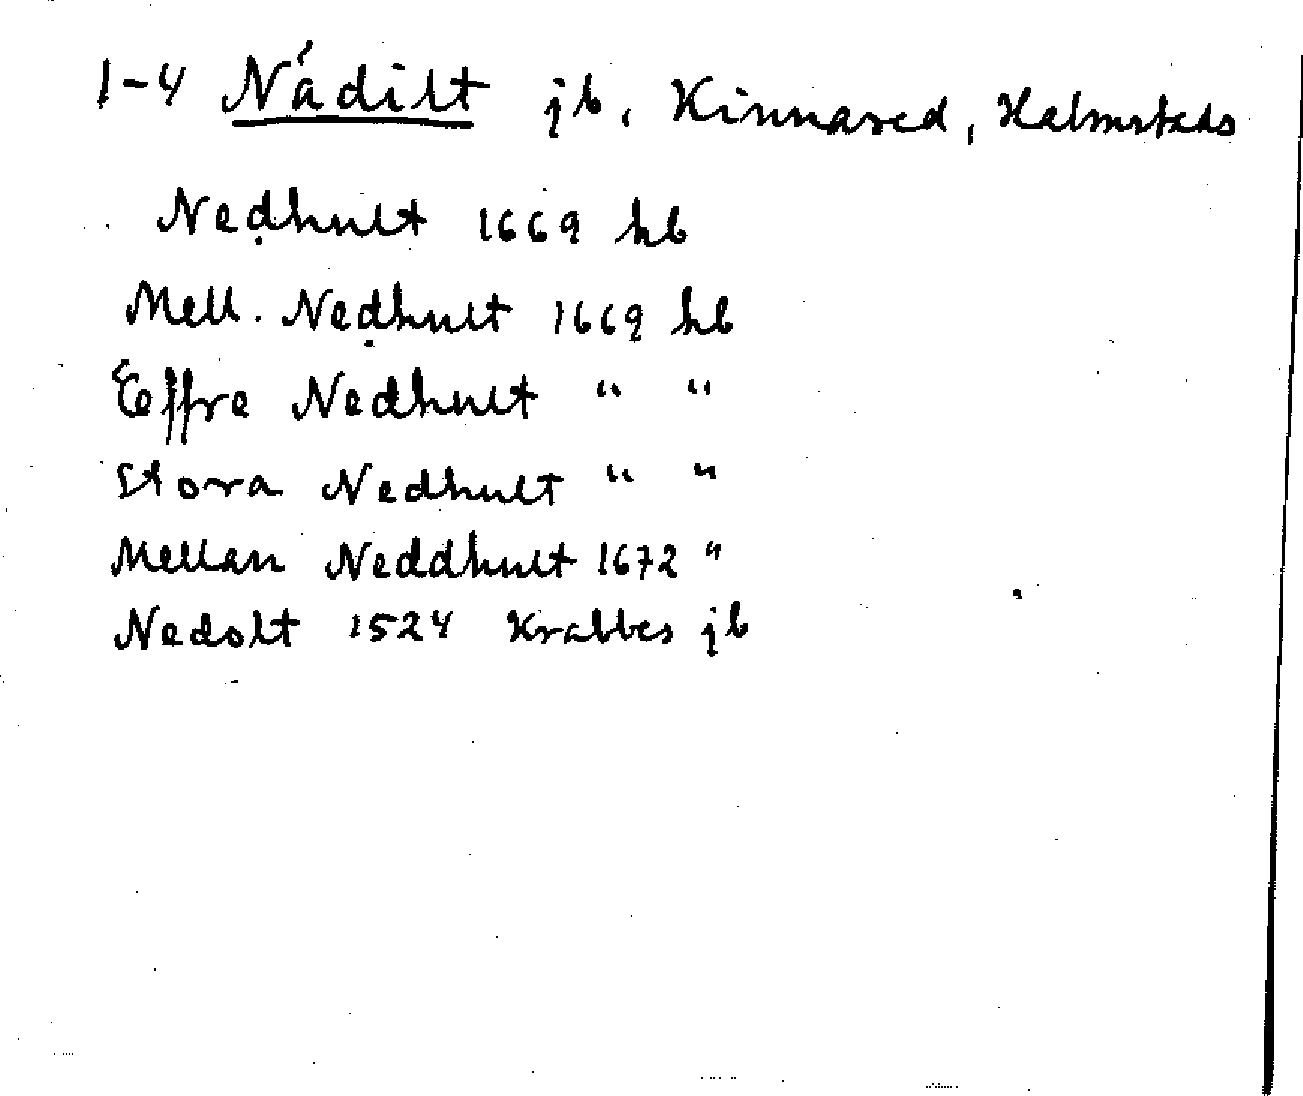 1-4 Nádilt jb, Kinnared, Halmstads
Nedhult 1669 hb
Mell. Nedhult 1669 hb
Effre Nedhult " "
Stora Nedhult " "
Mellan Neddhult 1672 "
Nedolt 1524 Krabbes jb